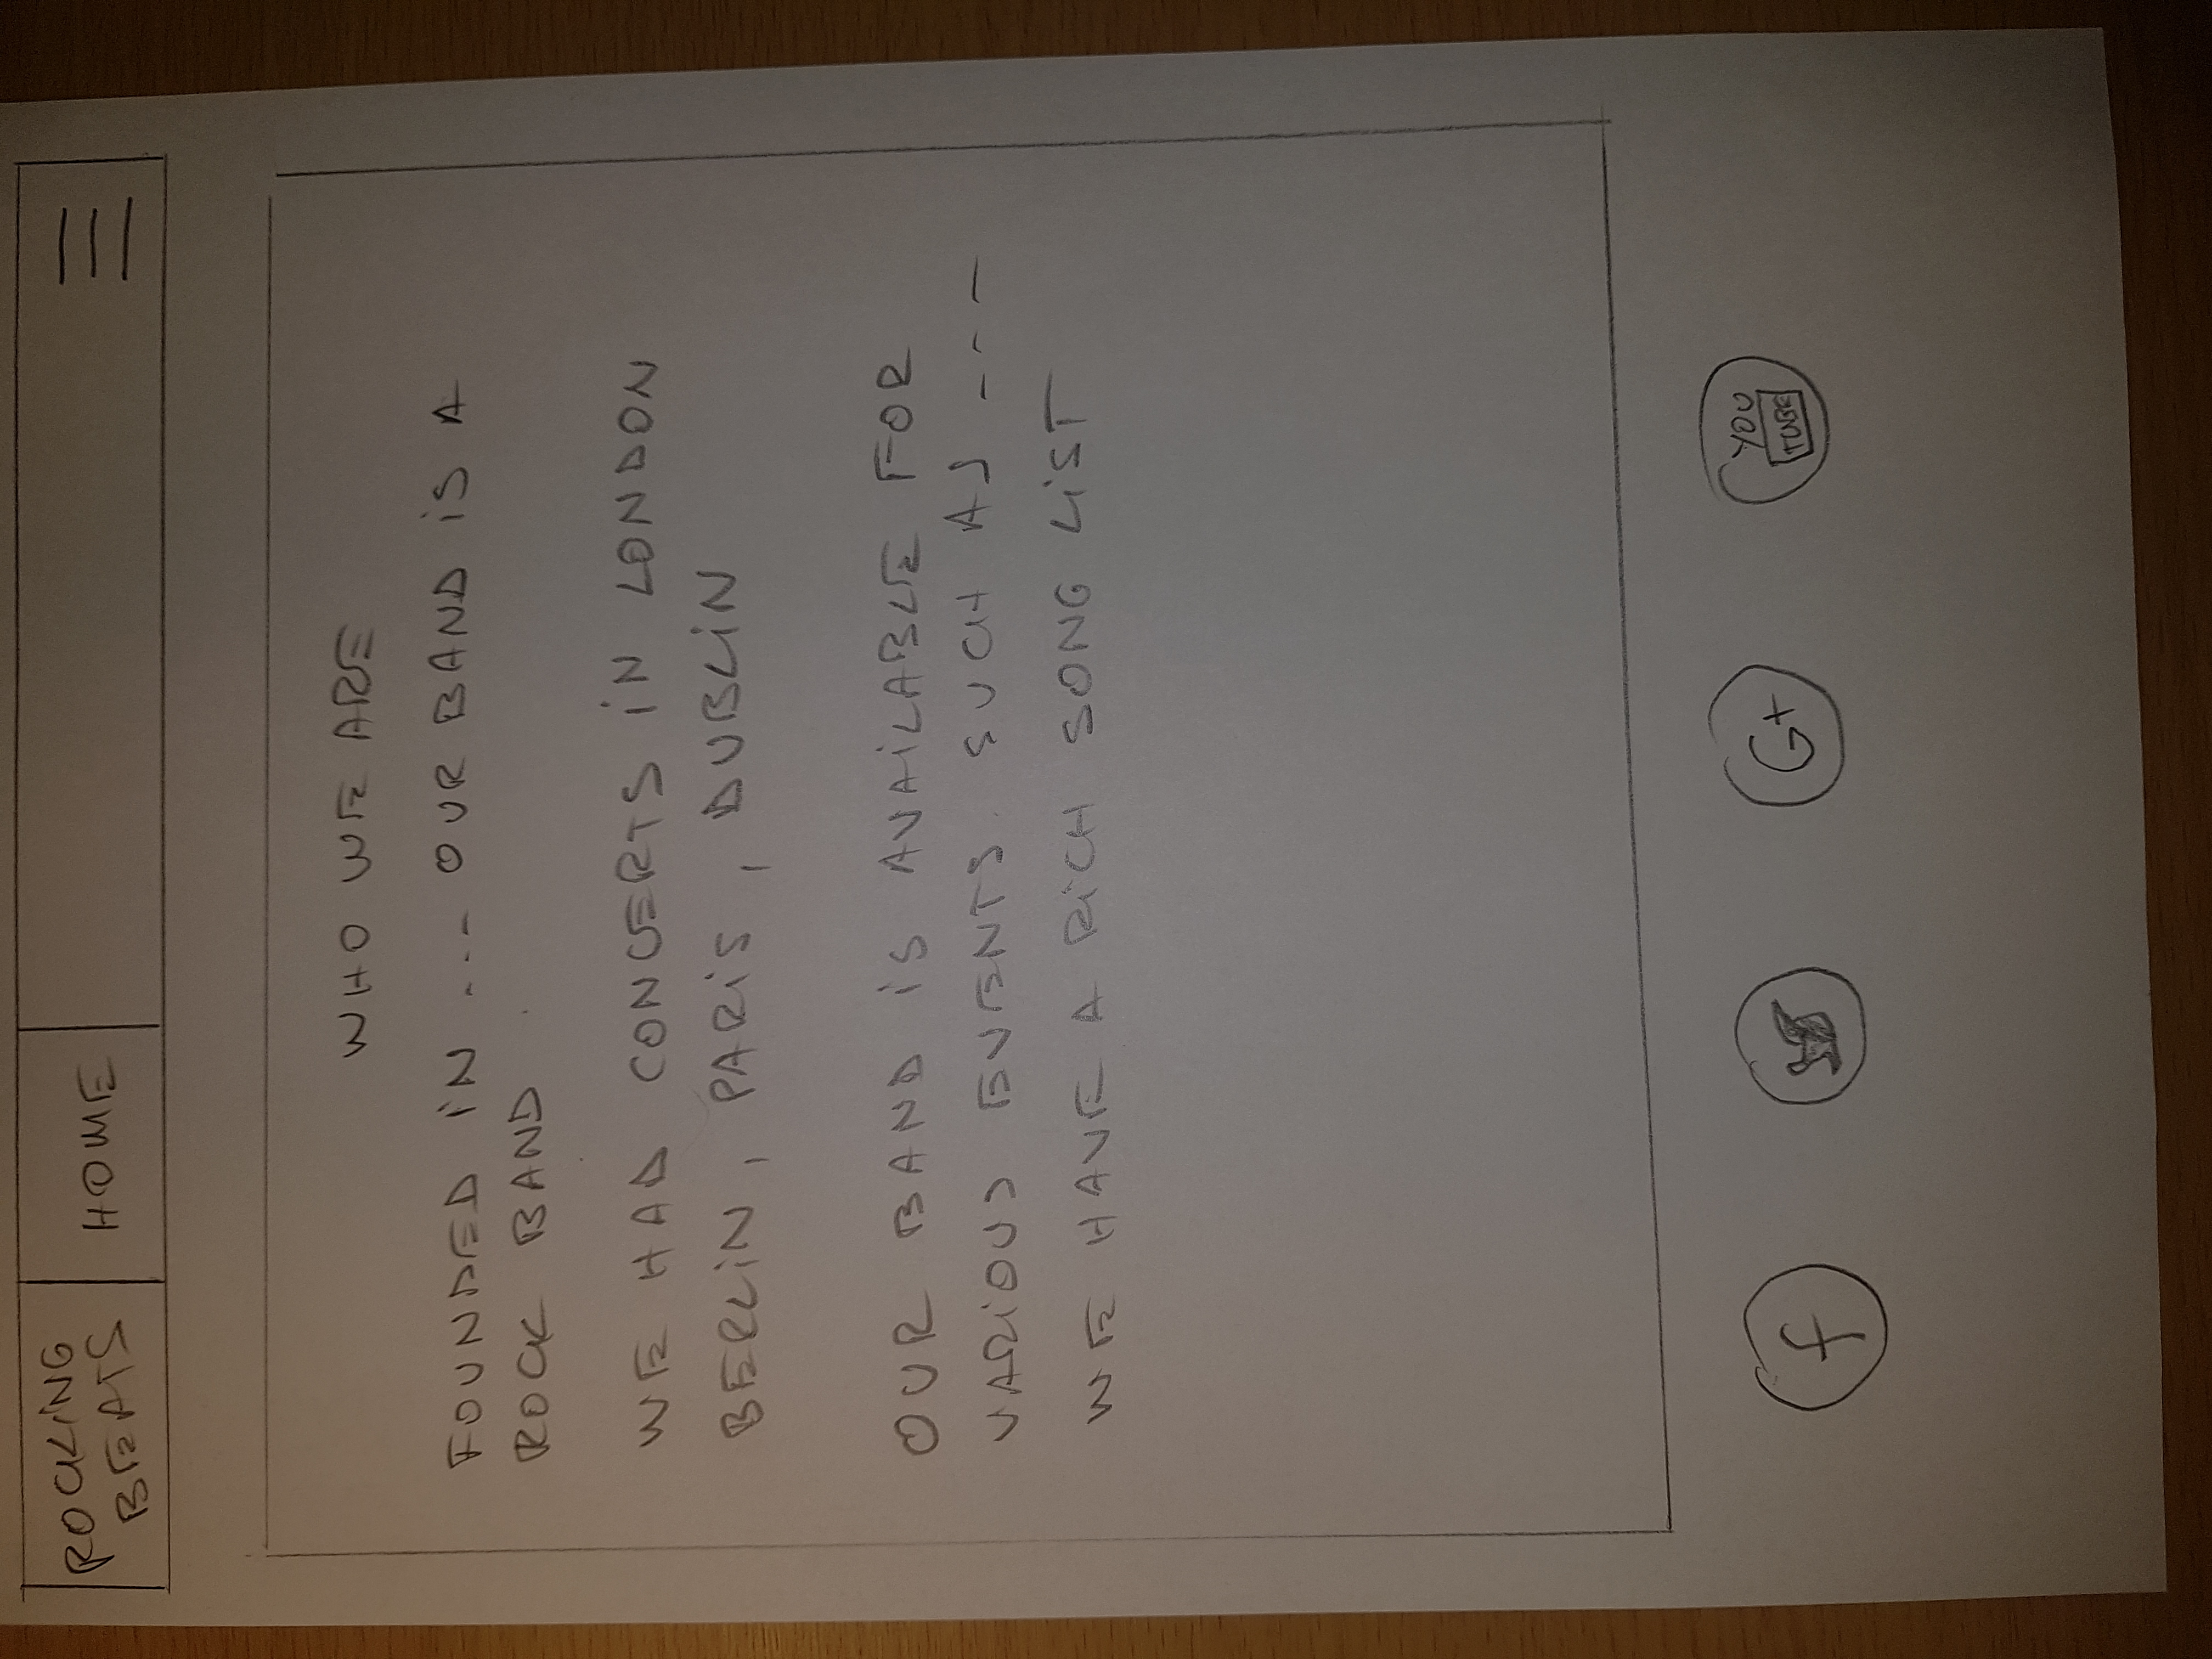 ROCKING
BEATS
HOME
WHO WE ARE
FOUNDED iN ... OUR BAND iS A
ROCK BAND.
WE HAD CONCERTS iN LONDON
BERLiN, PARiS, DUBLiN
OUR BAND iS AVAiLABLE FOR
VARiOUS EVENTS. SUCH AS ---
WE HAVE A RiCH SONG LiST
f
G+
YOU
TUBE